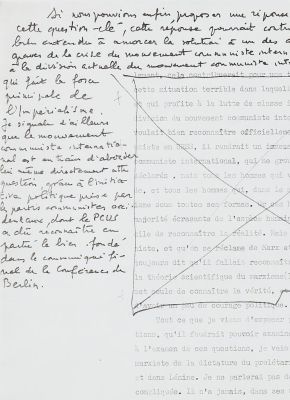 Si nous pouvions enfin proposer une réponse
cette question-clé, cette réponse pourrait contri
bien entendu à amorcer la solution à un des a
graves de la crise du mouvement communiste intern
à la division actuelle du mouvement communiste inte
qui fait la force
principale de
l'Impérialisme.
Je signale d'ailleurs
que le mouvement
communiste internatio-
nal est en train d'aborder
lui-même directement cette
question, grâce à l'initia-
tive politique prise par
les partis communistes occi-
dentaux dont le PCUS
a dû reconnaître en
partie le bien-fondé
dans le communiqué fi-
nal de la Conférence de
Berlin.
cette situation terrible dans laquell
et qui profite à la lutte de classe d
division du mouvement communiste inte
voulait bien reconnaître officielleme
existe en URSS, il rendrait un immens
communiste international, qui ne gros
déclarés, mais tous les hommes qui l
e, et tous les hommes qui, dans le
sme sous toutes ses formes,
majorité écrasante de l'espèce humain
ile de reconnaître la réalité. Mais
iste, et qu'on se réclame de Marx et
toujours dit qu'il fallait reconnaît
la théorie scientifique du marxisme l
est seule de connaître la vérité,
avoir un peu de courage politique.
Tout ce que je viens d'exposer
tions, qu'il faudrait pouvoir examine
à l'examen de ces questions, je vais
marxiste de la dictature du prolétar
et dans Lénine. Je ne parlerai pas de
compliquée. Il n'a jamais, dans ses